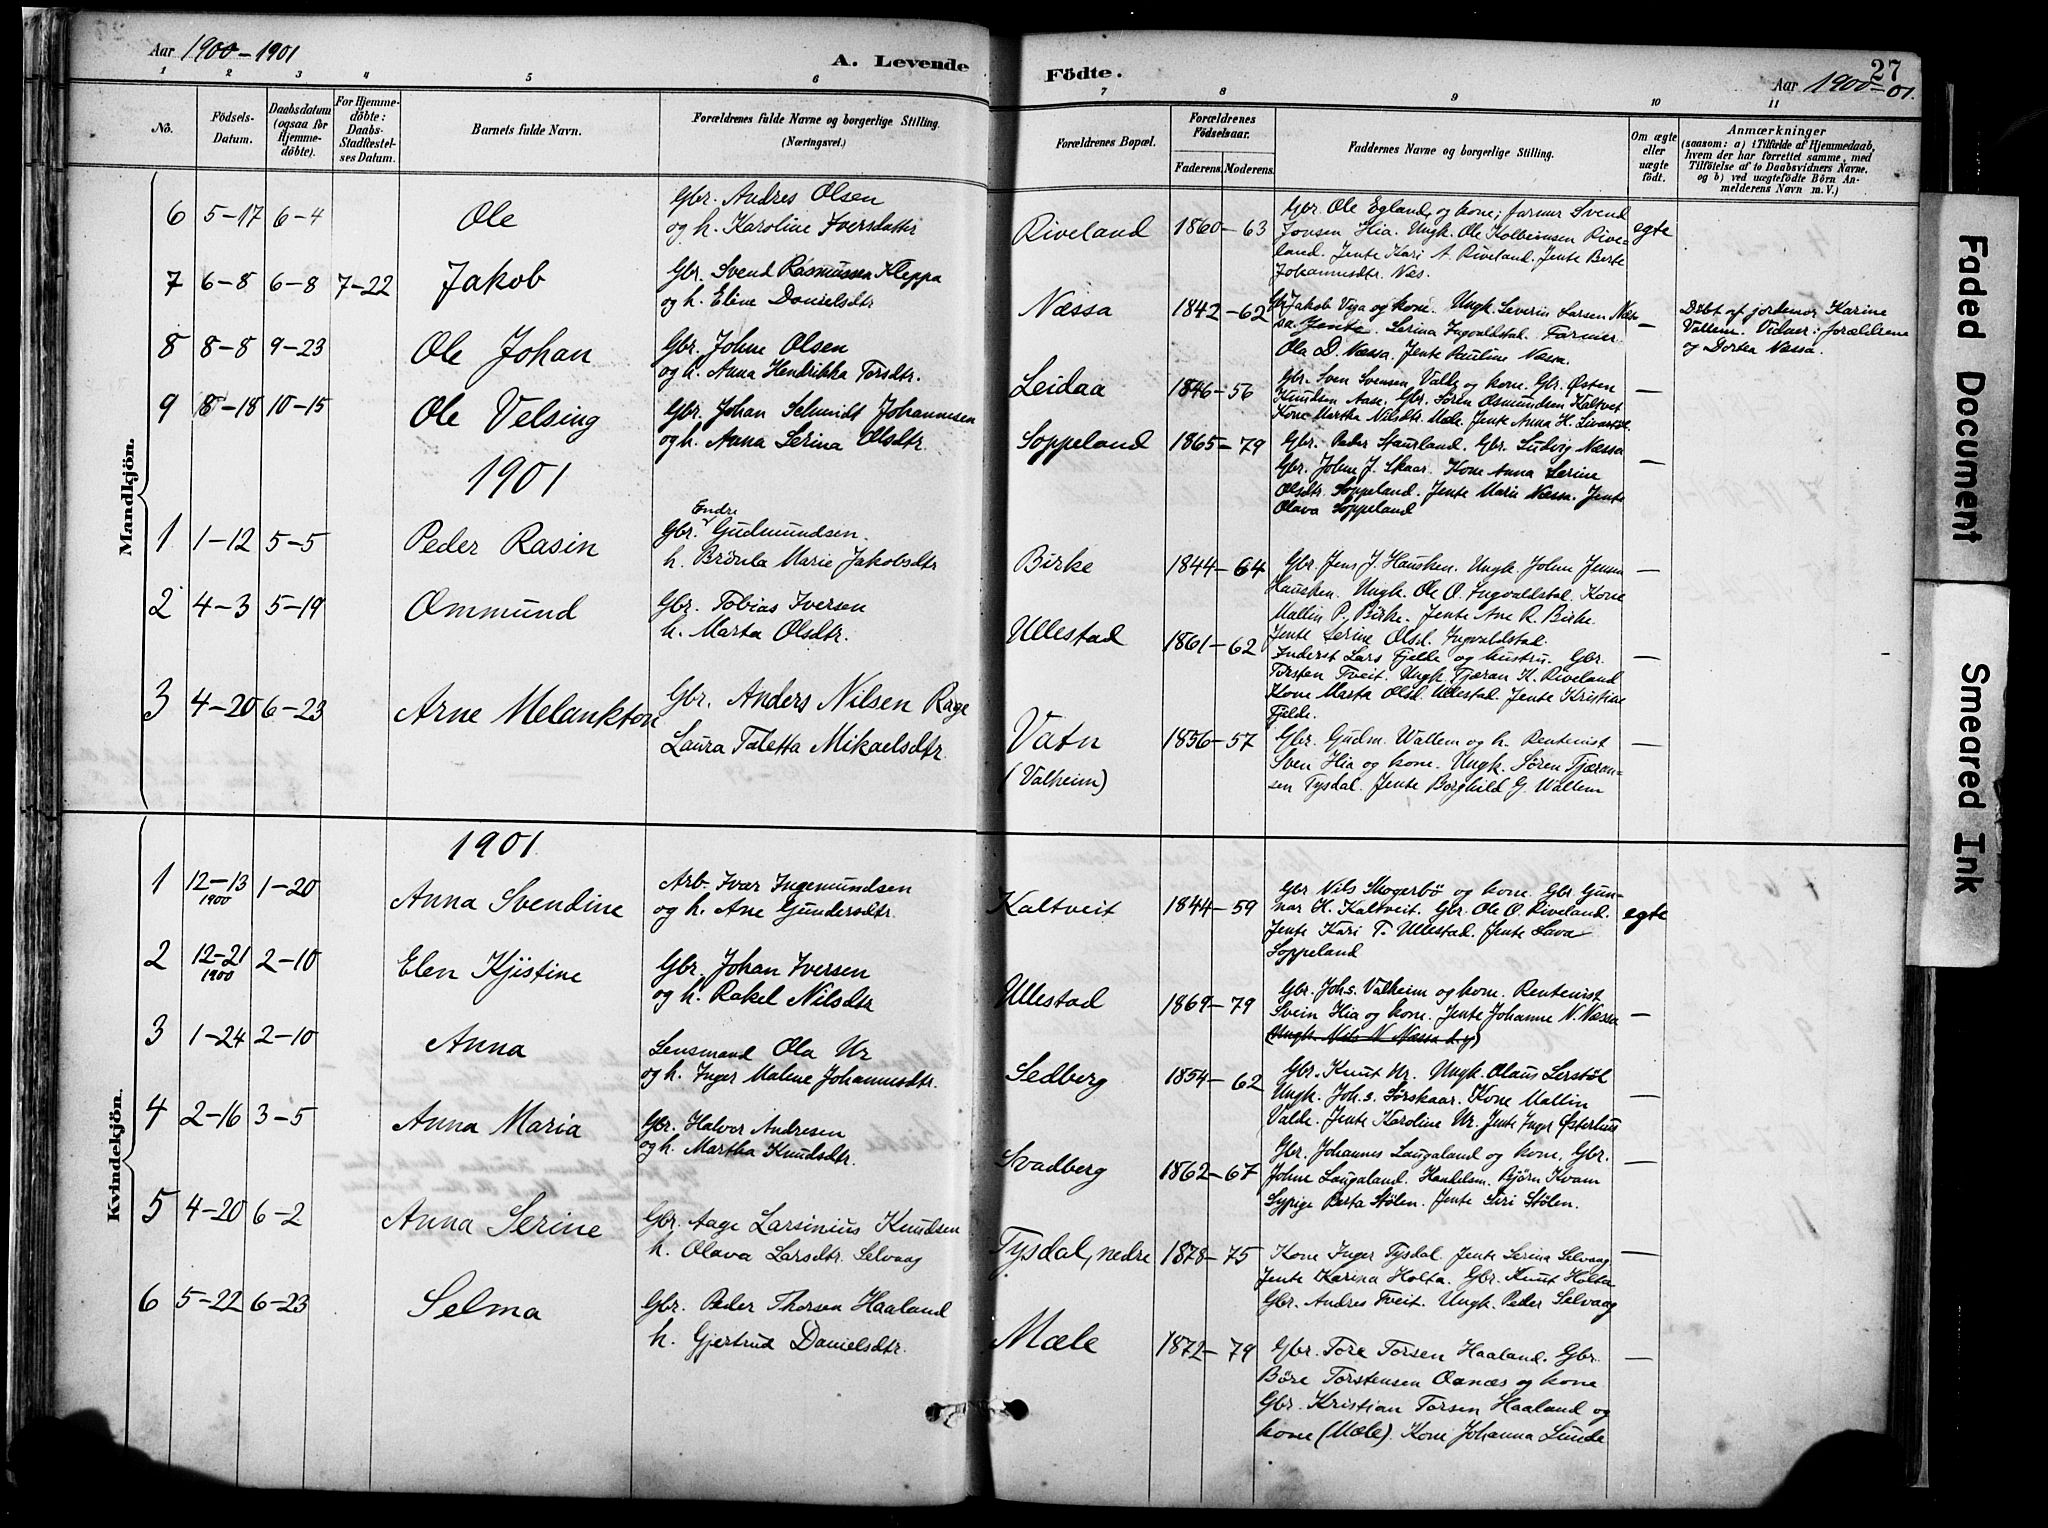 Aar 1900-1901
A. Levende
Födte.
27
Aar 1900-01.
1 2 3 4 5 6 7 8 9 10 11
No.
Födsels-Datum.
Daabsdatum (ogsaa for Hjemme-döbte).
For Hjemme-döbte: Daabs-Stadfæstel-ses Datum.
Barnets fulde Navn.
Forældrenes fulde Navne og borgerlige Stilling. (Næringsvei.)
Forældrenes Bopæl.
Forældrenes Födselsaar.
Faderens. Moderens.
Faddernes Navne og borgerlige Stilling.
Om ægte eller uægte födt.
Anmærkninger
(saasom: a) i Tilfælde af Hjemmedaab, hvem der har forrettet samme, med Tilföielse af to Daabsvidners Navne, og b) ved uægtefödte Börn An-melderens Navn m. V.)
Mandkjön.
6 5-17 6-4 Ole
Gbr. Andres Olsen
og h. Karoline Iversdatter
Riveland 1860-63
Gbr. Ole Egland og kone; farmer Svend
Jonsen Hia. Ungk. Ole Kolbeinsen Rive-
land. Jente Kari A. Riveland. Jente Berte
Johannesdtr. Næs.
egte
7 6-8 6-8 7-22 Jakob
Gbr. Svend Rasmussen Kleppa
og h. Eline Danielsdtr
Næssa 1842-62
Gbr. Jakob Viga og kone. Ungk. Severin Larsen Næs-
sa. Jente Serina Ingvaldstad. Farmer
Ola D. Næssa. Jente Pauline Næssa.
—
Döbt af jordemor Karine
Vallem. Vidner: forældrene
og Dortea Næssa.
8 8-8 9-23 Ole Johan
Gbr. Johne Olsen
og h. Anna Hendrikka Torsdtr.
Leidaa 1846-56
Gbr. Sven Svensen Valle og kone. Gbr. Østen
Knudsen Aase. Gbr. Sören Osmundsen Kaltvet
Kone Martha Nilsdtr. Mæle. Jente Anna H. Livastöl.
—
9 8-18 10-15 Ole Velsing
Gbr. Johan Schmidt Johannesen
og h. Anna Serina Olsdtr.
Soppeland 1865-79
Gbr. Peder Spurland. Gbr. Ludvig Næssa
Gbr. Johne J. Skaar. Kone Anna Serine
Olsdtr. Soppeland. Jente Marie Næssa. Jente
Olava Soppeland
—
1901
1 1-12 5-5 Peder Rasin
Endre
Gbr. Gudmundsen.
h. Brönla Marie Jakobsdtr
Birke 1844-64
Gbr. Jens J. Hausken. Ungk. Johne Jensen
Hausken. Ungk. Ole O. Ingvaldstad. Kone
Mallin P. Birke. Jente Ane R. Birke.
Jente Serine Olsd. Ingvaldstad
—
2 4-3 5-19 Ommund
Gbr. Tobias Iversen
h. Marta Olsdtr.
Ullestad 1861-62
Inderst Lars Fjelde og hustru. Gbr.
Torsten Tveit. Ungk. Tjæran K. Riveland
Kone Marta Olsd. Ullestad. Jente Kristine
Fjelde.
—
3 4-20 6-23 Arne Melankton
Gbr. Anders Nilsen Rage
Laura Taletta Mikaelsdtr.
Vatn 1856-57
(Valheim)
Gbr. Gudm. Wallem og h. Rentenist
Sven Hia og kone. Ungk. Sören Tjæran-
sen Tysdal. Jente Borghild G. Wallem
—
Kvindekjön.
1901
1 12-13 1900 1-20 Anna Svendine
Arb. Ivar Ingemundsen
og h. Ane Gundersdtr.
Kaltveit 1844-59
Gbr Nils Skogerbö og kone. Gbr Gun-
nar H. Kaltveit. Gbr. Ole O. Riveland.
Jente Kari T. Ullestad. Jente Lava
Soppeland
egte
2 12-21 1900 2-10 Elen Kjistine
Gbr. Johan Iversen
og h. Rakel Nilsdtr
Ullestad 1869-79
Gbr. Johs. Valheim og kone. Rentenist
Svein Hia og kone. Jente Johanne N. Næssa
(Ungk. Nils N. Næssa d.y.)
—
3 1-24 2-10 Anna
Lensmand Ola Ur
og h. Inger Malene Johannesdtr.
Sedberg 1854-62
Gbr. Knut Ur. Ungk. Olaus Lerstöl
Ungk. Johs. Sörskaar. Kone Mallin
Valde. Jente Karoline Ur. Jente Inger Østerhus
—
4 2-16 3-5 Anna Maria
Gbr. Halvor Andresen
og h. Martha Knudsdtr.
Svadberg 1862-67
Gbr. Johannes Laugaland og kone. Gbr.
Johne Laugaland. Handelsm. Björn Kvam
Sypige Berta Stölen. Jente Siri Stölen.
—
5 4-20 6-2 Anna Serine
Gbr. Aage Larsinius Knudsen
h. Olava Larsdtr. Selvaag
Tysdal, nedre 1878-75
Kone Inger Tysdal. Jente Serina Selvaag
Jente Karina Holta. Gbr. Knut Holta
Gbr. Andres Tveit. Ungk. Peder Selvaag
—
6 5-22 6-23 Selma
Gbr. Peder Thorsen Haaland
h. Gjertrud Danielsdtr.
Mæle 1872-79
Gbr. Tore Torsen Haaland. Gbr.
Böre Torstensen Oanæs og kone
Gbr. Kristian Torsen Haaland og
kone (Mæle). Kone Johanna Lunde
—
Faded Document
Smeared Ink